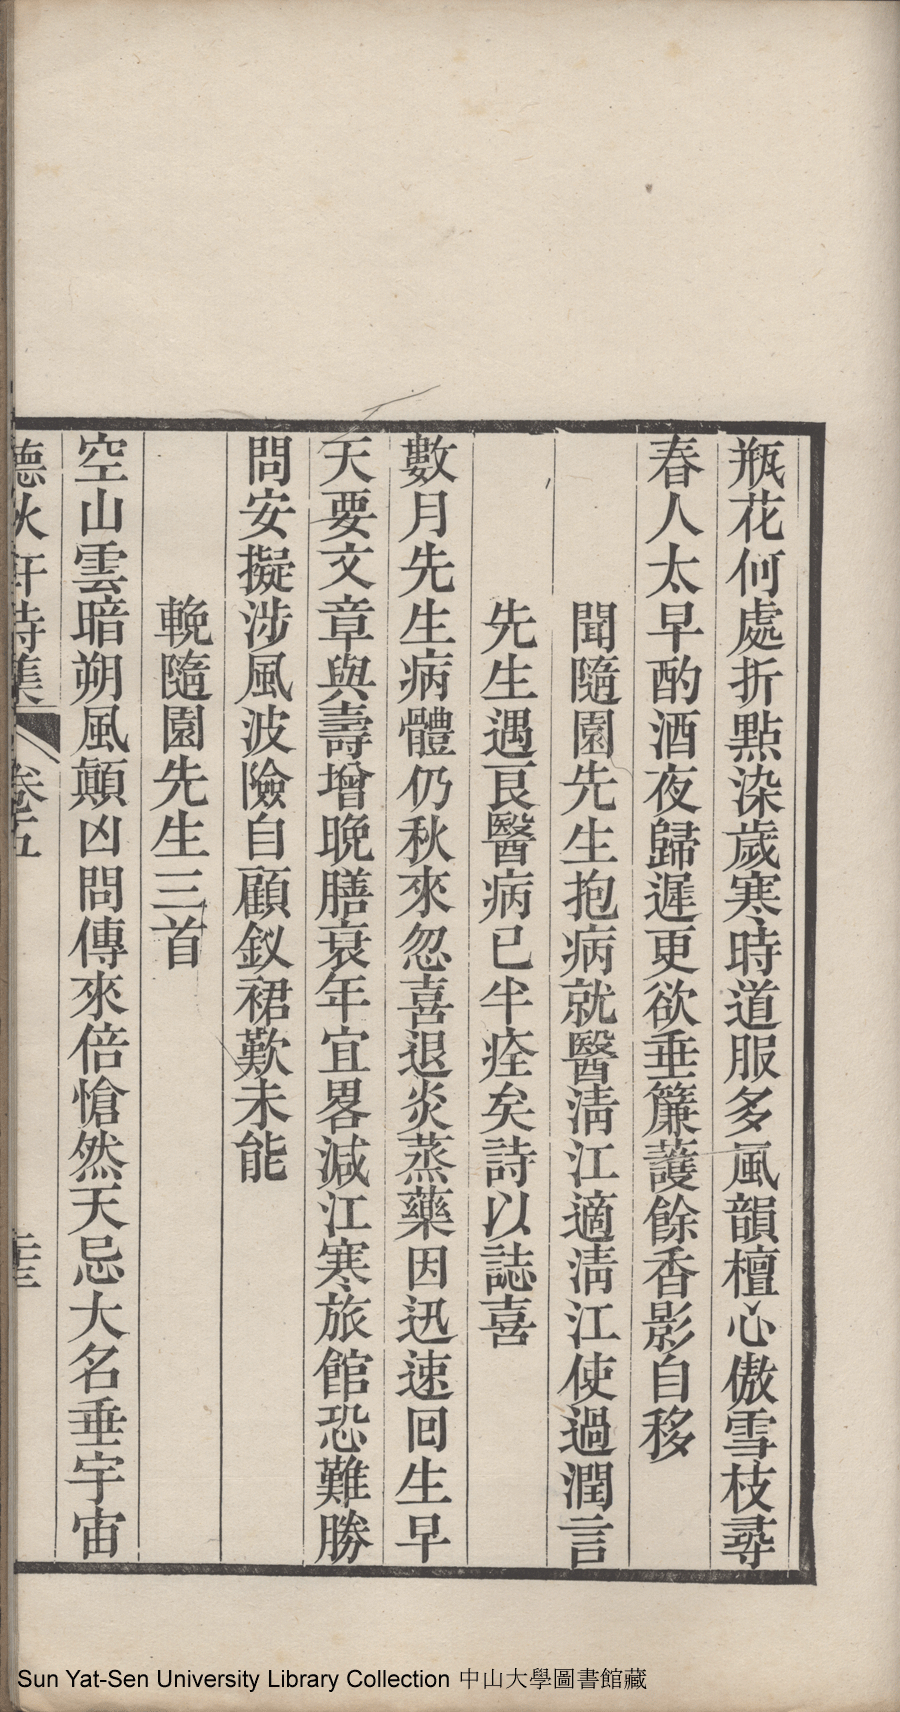 瓶花何處折點染歲寒時道服多風韻檀心傲雪枝尋
春人太早酌酒夜歸遲更欲垂簾護餘香影自移
聞隨園先生抱病就醫淸江適淸江使過潤言
先生遇良醫病已半痊矣詩以誌喜
數月先生病體仍秋來忽喜退炎蒸藥因迅速回生早
天要文章與壽增晚膳衰年宜畧減江寒旅館恐難勝
問安擬涉風波險自顧釵裙歎未能
輓隨園先生三首
空山雲暗朔風顛凶問傳來倍愴然天忌大名垂宇宙
德秋軒詩集 卷五 二十三
Sun Yat-Sen University Library Collection 中山大學圖書館藏